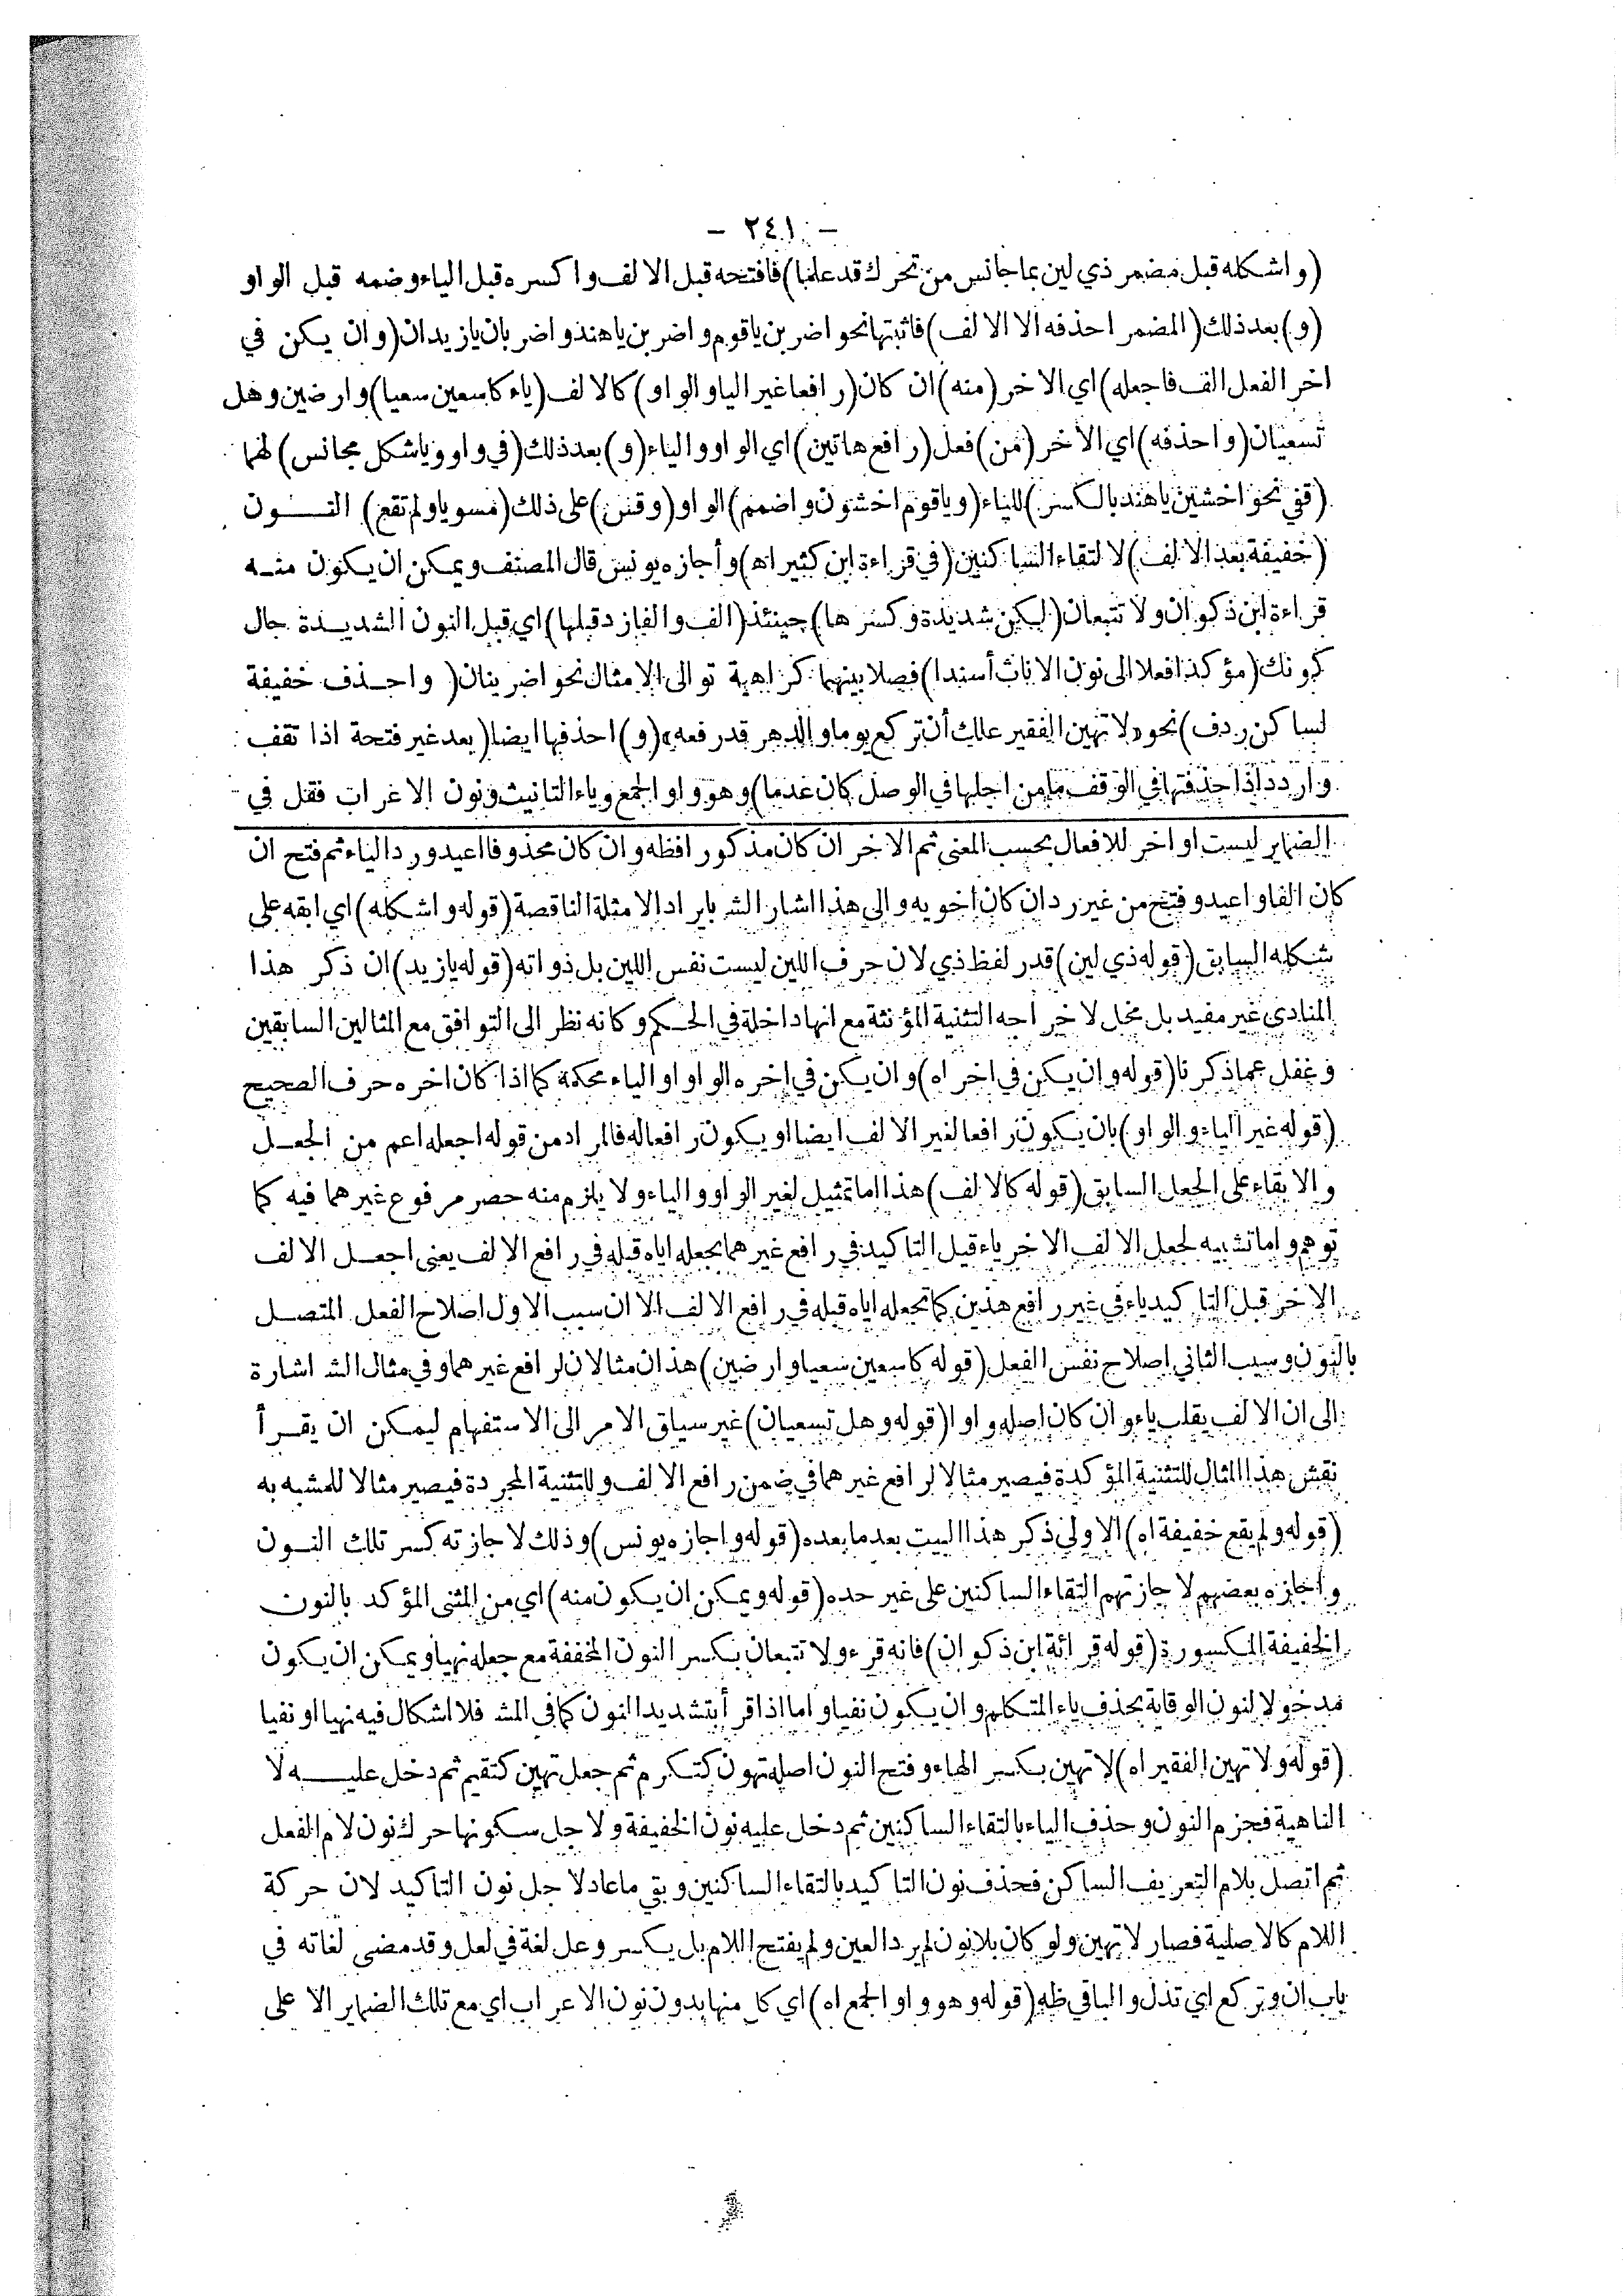 – ٢٤١ –
(واشكله قبل مضمر ذي لين بما جانس من تحرك قد علما) فافتحه قبل الالف واكسره قبل الياء وضمه قبل الواو
(و) بعد ذلك (المضمر احذفه الا الالف) فاثبتها نحو اضربن ياقوم واضربن ياهند واضربان يازيدان (وان يكن في
اخر الفعل الف فاجعله) اي الاخر (منه) ان كان (رافعا غير اليا والواو) كالالف (ياء كاسعين سعيا) وارضين وهل
تسعيان (واحذفه) اي الاخر (من) فعل (رافع هاتين) اي الواو والياء (و) بعد ذلك (في واو ويا شكل مجانس) لهما
(قفي نحو اخشين ياهند بالكسر) للياء (وياقوم اخشون واضمم) الواو (وقس) على ذلك (مسويا ولم تقع) النون
(خفيفة بعد الالف) لالتقاء الساكنين (في قراءة ابن كثير اه) وأجازه يونس قال المصنف ويمكن ان يكون منه
قراءة ابن ذكوان ولا تتبعان (لكن شديدة وكسرها) حينئذ (الف والفا زد قبلها) اي قبل النون الشديدة حال
كونك (مؤكدا فعلا الى نون الاناث أسندا) فصلا بينهما كراهية توالى الامثال نحو اضربنان (واحذف خفيفة
لساكن ردف) نحو «لا تهين الفقير علك أن تركع يوما والدهر قد رفعه» (و) احذفها ايضا (بعد غير فتحة اذا تقف
واردد اذا حذفتها في الوقف ما من اجلها في الوصل كان عدما) وهو واو الجمع وياء التانيث ونون الاعراب فقل في
الضماير ليست اواخر للافعال بحسب المعنى ثم الاخر ان كان مذكورا فظه وان كان محذوفا اعيد ورد الياء ثم فتح ان
كان الفا واعيد وفتح من غير رد ان كان اخويه والى هذا اشار الش بايراد الامثلة الناقصة (قوله واشكله) اي ابقه على
شكله السابق (قوله ذي لين) قدر لفظ ذي لان حرف اللين ليست نفس اللين بل ذواته (قوله يازيد) ان ذكر هذا
المنادى غير مفيد بل مخل لاخراجه التثنية المؤنثة مع انها داخلة في الحكم وكانه نظر الى التوافق مع المثالين السابقين
وغفل عما ذكرنا (قوله وان يكن في اخر اه) وان يكن في اخره الواو او الياء محكمة كما اذا كان اخره حرف الصحيح
(قوله غير الياء والواو) بان يكون رافعا لغير الالف ايضا او يكون رافعا له فالمراد من قوله اجعله اعم من الجعل
والابقاء على الجعل السابق (قوله كالالف) هذا اما تمثيل لغير الواو والياء ولا يلزم منه حصر مرفوع غيرهما فيه كما
توهم واما تشبيه لجعل الالف الاخر ياء قبل التاكيد في رافع غيرهما بجعله اياه قبله في رافع الالف يعنى اجعل الالف
الاخر قبل التاكيد ياء في غير رافع هذين كما تجعله اياه قبله في رافع الالف الا ان سبب الاول اصلاح الفعل المتصل
بالنون وسبب الثاني اصلاح نفس الفعل (قوله كاسعين سعيا وارضين) هذان مثالان لرافع غيرهما وفي مثال الش اشارة
الى ان الالف يقلب ياء وان كان اصله واوا (قوله وهل تسعيان) غير سياق الامر الى الاستفهام ليمكن ان يقرأ
نقش هذا المثال للتثنية المؤكدة فيصير مثالا لرافع غيرهما في ضمن رافع الالف وللتثنية المجردة فيصير مثالا للمشبه به
(قوله ولم يقع خفيفة اه) الاولى ذكر هذا البيت بعد ما بعده (قوله واجازه يونس) وذلك لاجازته كسر تلك النون
واجازه بعضهم لاجازتهم التقاء الساكنين على غير حده (قوله ويمكن ان يكون منه) اي من المثنى المؤكد بالنون
الخفيفة المكسورة (قوله قرائة ابن ذكوان) فانه قرء ولا تتبعان بكسر النون المخففة مع جعله نهيا ويمكن ان يكون
مدخولا لنون الوقاية بحذف ياء المتكلم وان يكون نفيا واما اذا قرأ بتشديد النون كما في المش فلا اشكال فيه نهيا او نفيا
(قوله ولا تهين الفقير اه) لا تهين بكسر الهاء وفتح النون اصله تهون كتكرم ثم جعل تهين كتقيم ثم دخل عليه لا
الناهية فجزم النون وحذف الياء بالتقاء الساكنين ثم دخل عليه نون الخفيفة ولاجل سكونها حرك نون لام الفعل
ثم اتصل بلام التعريف الساكن فحذف نون التاكيد بالتقاء الساكنين وبقي ما عاد لاجل نون التاكيد لان حركة
اللام كالاصلية فصار لا تهين ولو كان بلا نون لم يرد العين ولم يفتح اللام بل يكسر وعل لغة في لعل وقد مضى لغاته في
باب ان وتركع اي تذل والباقي ظه (قوله وهو واو الجمع اه) اي كل منها بدون نون الاعراب اي مع تلك الضماير الا على